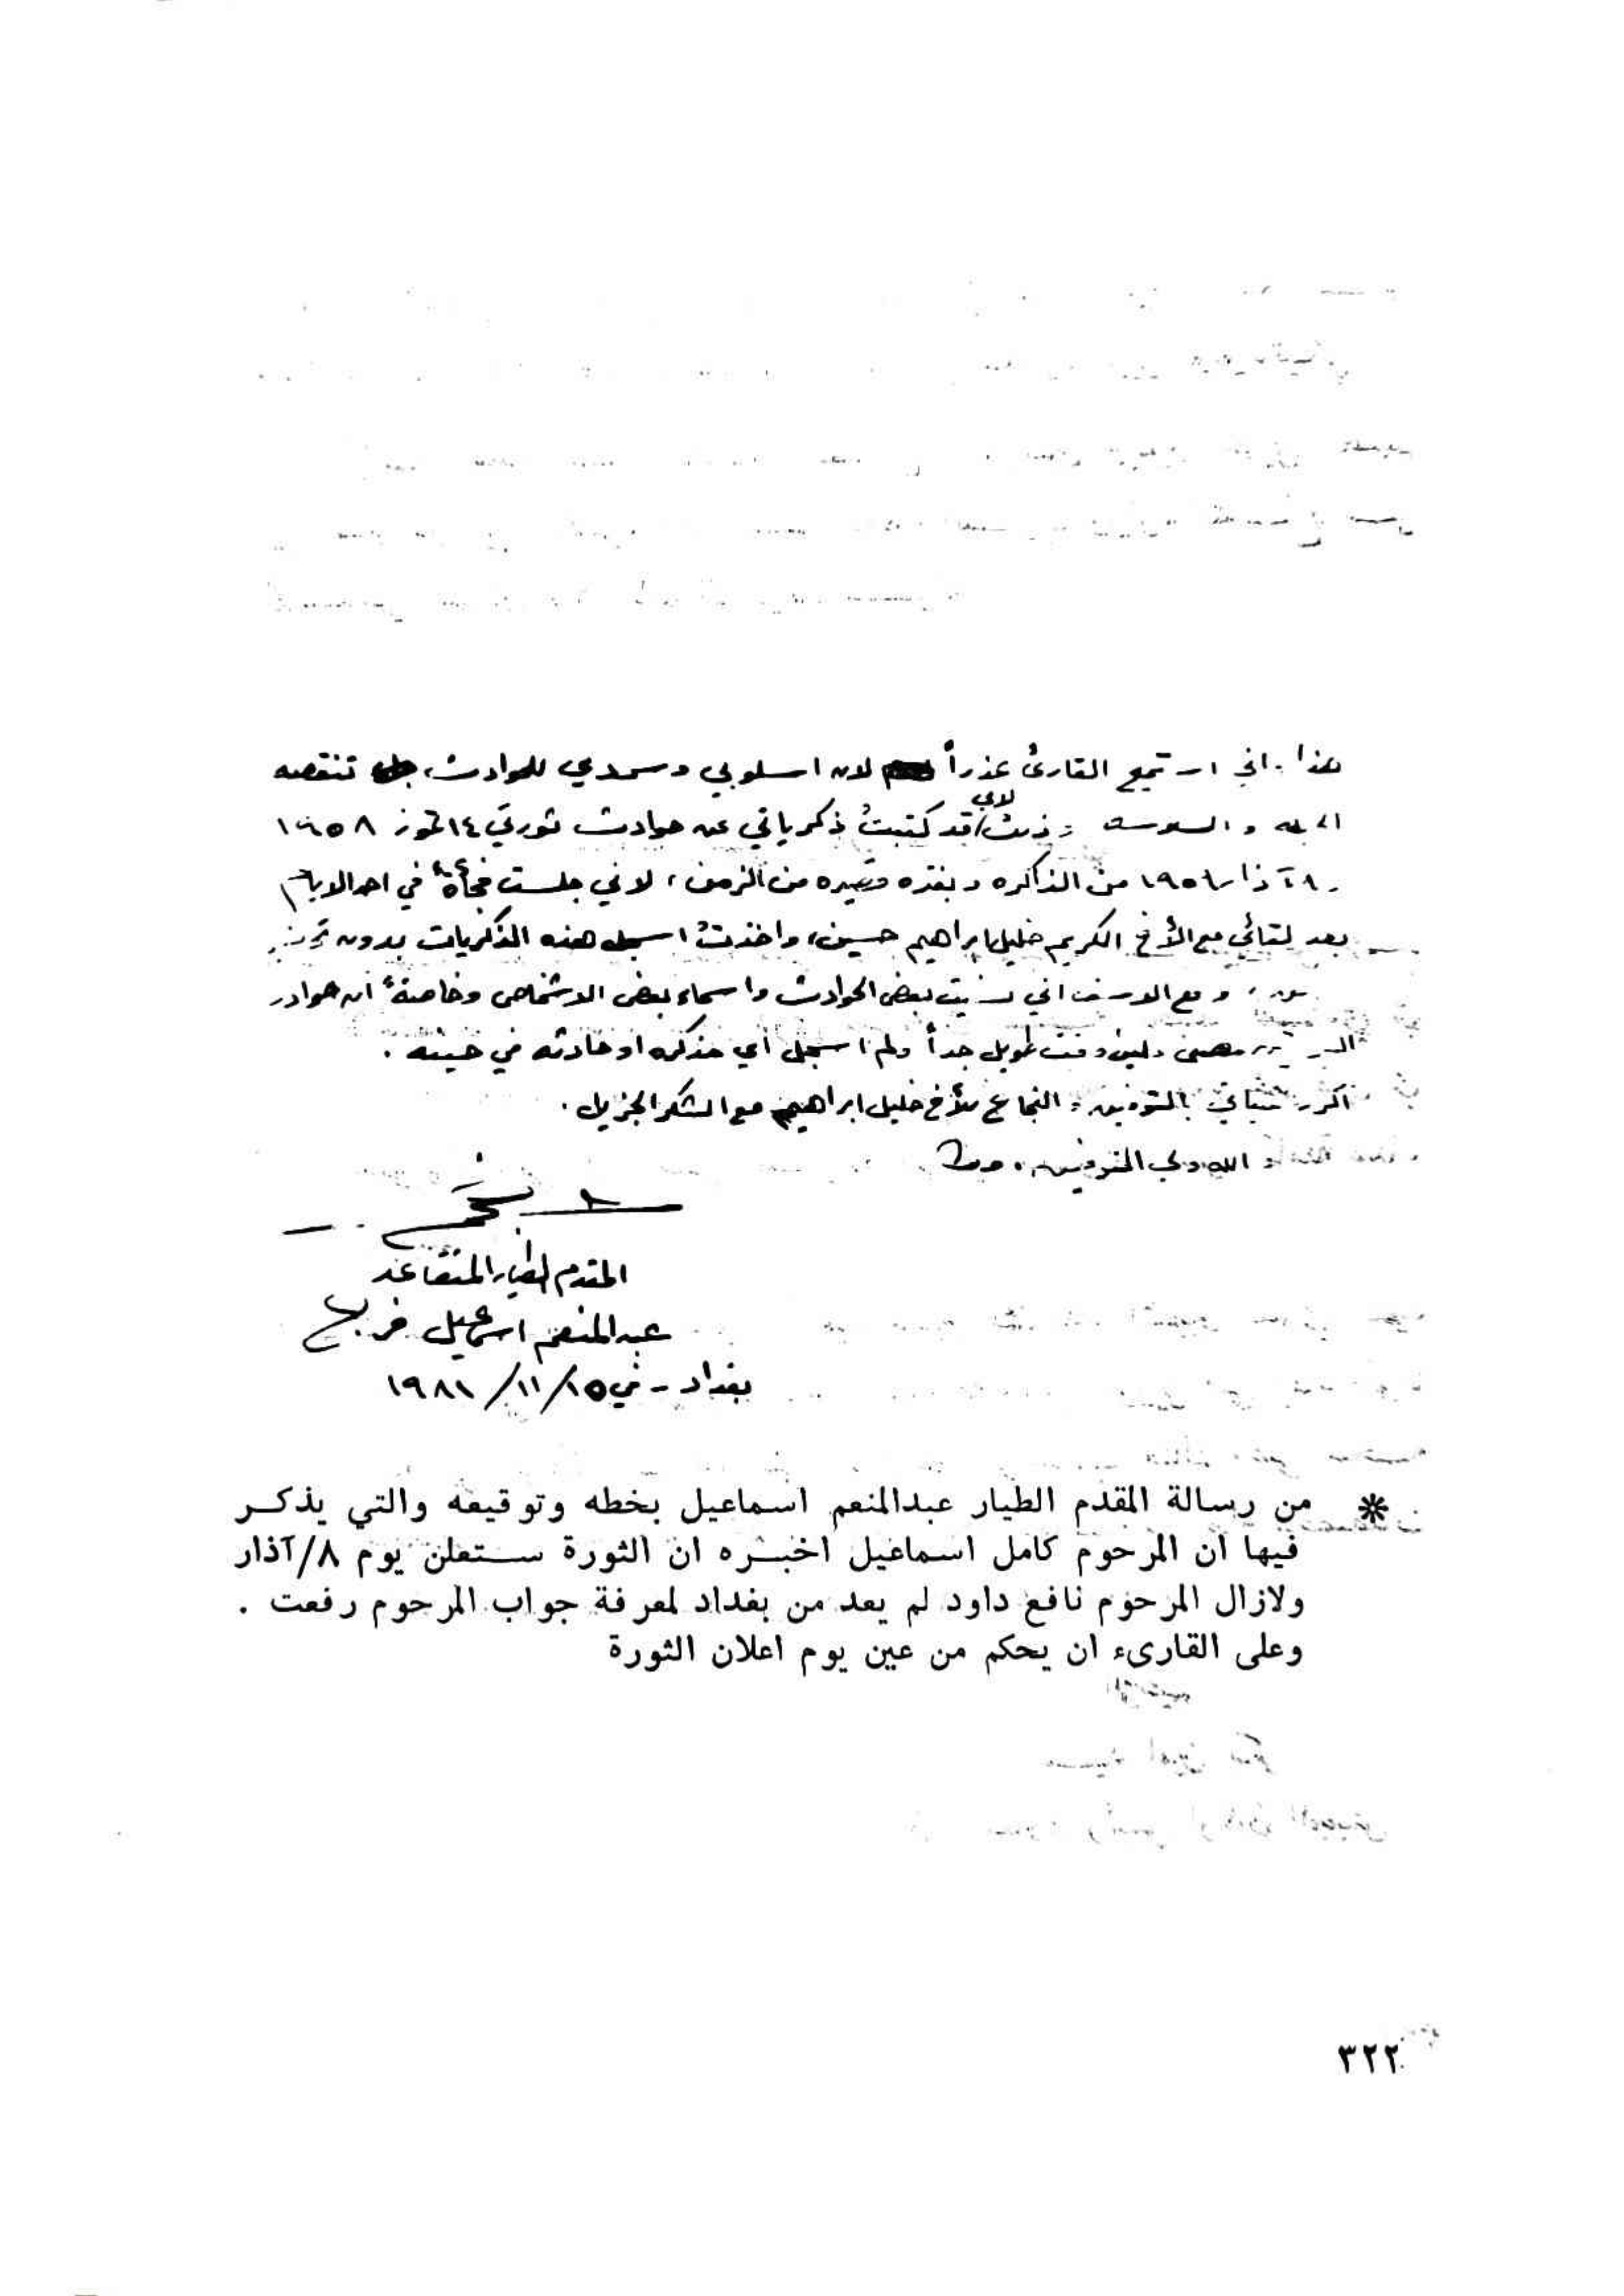 هذا. اني استميح القارئ عذراً لان اسلوبي وسردي للحوادث تنقصه
و السلاسة وذلك لاني قد كتبتُ ذكرياتي عن حوادث ثورتي ١٤ تموز ١٩٥٨
و ٨ آذار ١٩٥٩ من الذاكره وبفتره قصيره من الزمن، لاني جلست فجأةً في احد الايام
بعد لقائي مع الأخ الكريم خليل ابراهيم حسين، واخذتُ اسجل هذه الذكريات بدون
ومع الاسف اني نسيت بعض الحوادث واسماء بعض الاشخاص وخاصةً ان حوادث
مضى وقت طويل جداً ولم اسجل أي مذكره او حادثه في حينه .
اكرر بالتوفيق والنجاح للأخ خليل ابراهيم مع الشكر الجزيل .
والله ولي التوفيق .
المقدم الطيار المتقاعد
عبدالمنعم اسماعيل
بغداد - في ١٥/ ١١/ ١٩٨١
* من رسالة المقدم الطيار عبدالمنعم اسماعيل بخطه وتوقيعه والتي يذكر
فيها ان المرحوم كامل اسماعيل اخبره ان الثورة ستعلن يوم ٨/آذار
ولازال المرحوم نافع داود لم يعد من بغداد لمعرفة جواب المرحوم رفعت .
وعلى القارىء ان يحكم من عين يوم اعلان الثورة
٣٢٢